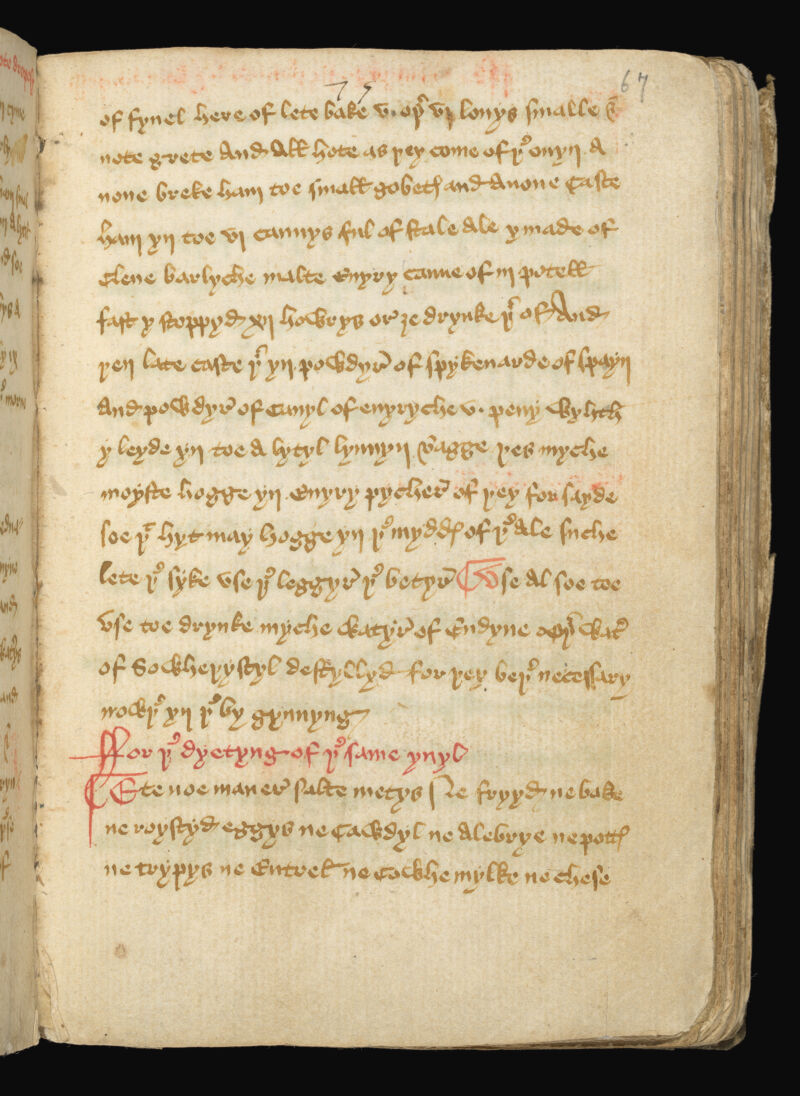 67
75
of fynel here of lete bake v. oþer vj lovys smalle &
note grete And All hote as þey come of þe ovyn A
none breke ham toe small gobetes and Anone Caste
ham yn toe vj cannys ful of stale Ale ymade of
Clene barlyche malte Euyry canne of iij potell
fast y stoppyd xij howrys or ȝe drynke þer of And
þen late caste þer yn powdyr of spykenarde of spayn
And powdyr of Canyl of euyryche v. peny wyhth
y leyde yn toe A lytyl lynnyn bagge þes myche
moyste hogge yn Euyry pycher of þey for sayde
soe þat hyt may hogge yn þe myddes of þe Ale suche
lete þe syke vse þe leggyr þe betyr Vse Al soe toe
vse toe drynke myche watyr of Endyne oþer water
of Sowheþystyl destyllyd for þey beþe necessary
nowþe yn þe by gynnyng
For þe dyetyng of þe same yvyl
Ete noe maner salte metys Ne fryyd ne bake
ne roystyd eggys ne Cawdyl ne Alebrye ne pottes
ne trypys ne Entrel ne Cowhe mylke ne chese